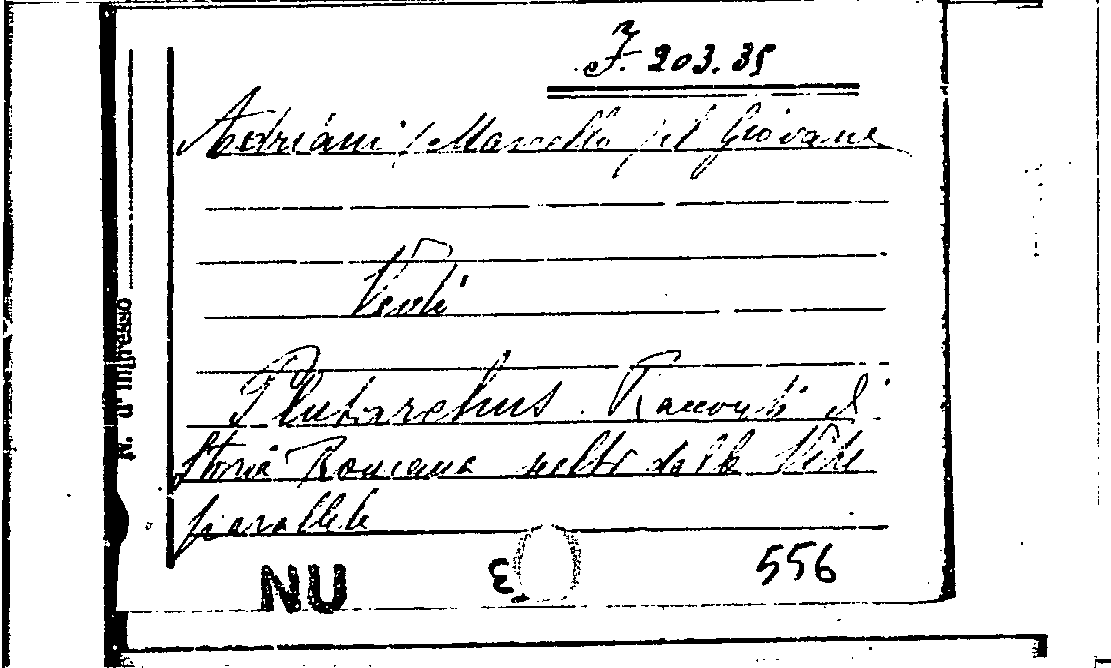 F. 203. 35
Adriani Marcello il Giovane
Vedi
Plutarchus. Racconti di
Storia Romana scelti dalle Vite
parallele
N. d'ingresso
NU 556